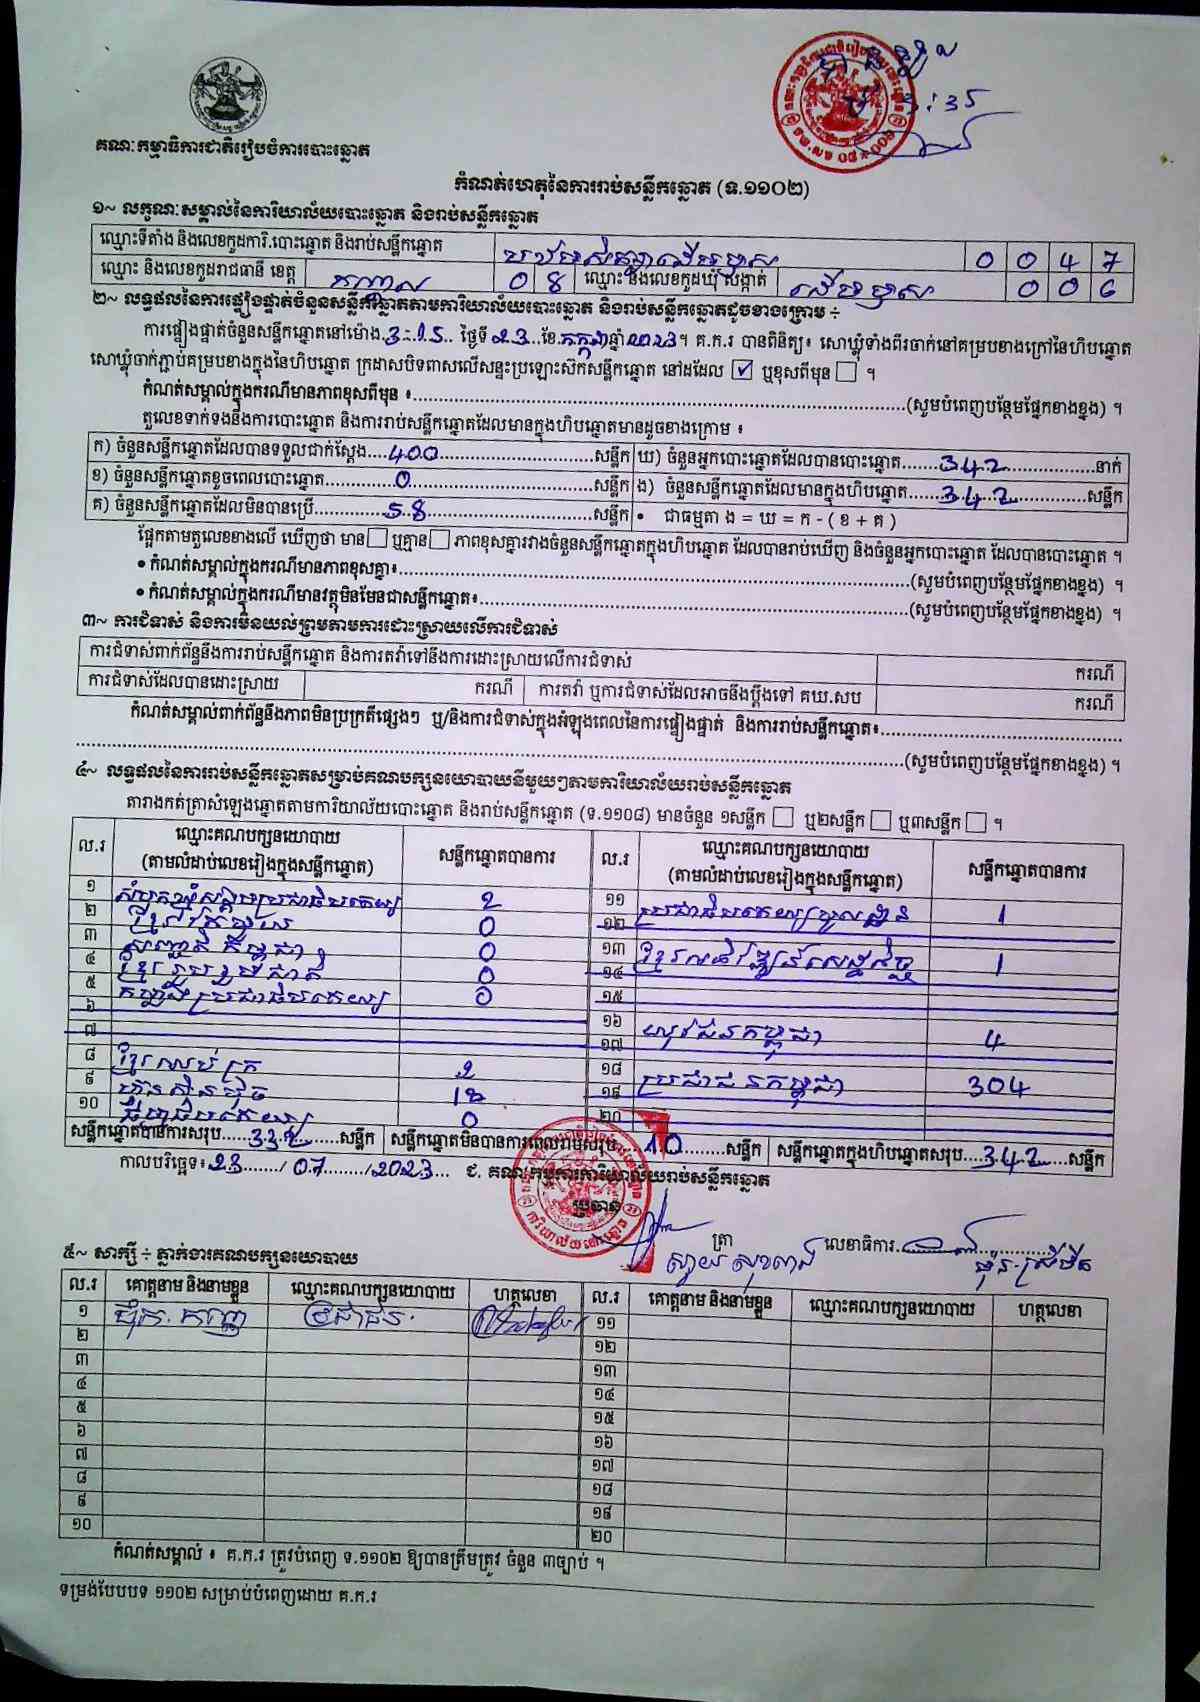 គណៈកម្មាធិការជាតិរៀបចំការបោះឆ្នោត
៣:35
កំណត់ហេតុនៃការរាប់សន្លឹកឆ្នោត (ទ.១១០២)
១~ លក្ខណៈសម្គាល់នៃការិយាល័យបោះឆ្នោត និងរាប់សន្លឹកឆ្នោត
ឈ្មោះទីតាំង និងលេខកូដការិ.បោះឆ្នោត និងរាប់សន្លឹកឆ្នោត 0 0 4 7
ឈ្មោះ និងលេខកូដរាជធានី ខេត្ត កណ្តាល 0 8 ឈ្មោះ និងលេខកូដឃុំ សង្កាត់ 0 0 6
២~ លទ្ធផលនៃការផ្ទៀងផ្ទាត់ចំនួនសន្លឹកឆ្នោតតាមការិយាល័យបោះឆ្នោត និងរាប់សន្លឹកឆ្នោតដូចខាងក្រោម ÷
ការផ្ទៀងផ្ទាត់ចំនួនសន្លឹកឆ្នោតនៅម៉ោង 3:15 ថ្ងៃទី 23 ខែ កក្កដា ឆ្នាំ 2023។ គ.ក.រ បានពិនិត្យ៖ សោឃ្លុំទាំងពីរចាក់នៅគម្របខាងក្រៅនៃហិបឆ្នោត
សោឃ្លុំចាក់ភ្ជាប់គម្របខាងក្នុងនៃហិបឆ្នោត ក្រដាសបិទពាសលើសន្ទះប្រឡោះស៊កសន្លឹកឆ្នោត នៅដដែល ☑ ឬខុសពីមុន ☐ ។
កំណត់សម្គាល់ក្នុងករណីមានភាពខុសពីមុន ៖ (សូមបំពេញបន្ថែមផ្នែកខាងខ្នង) ។
តួលេខទាក់ទងនឹងការបោះឆ្នោត និងការរាប់សន្លឹកឆ្នោតដែលមានក្នុងហិបឆ្នោតមានដូចខាងក្រោម ៖
ក) ចំនួនសន្លឹកឆ្នោតដែលបានទទួលជាក់ស្តែង 400 សន្លឹក ឃ) ចំនួនអ្នកបោះឆ្នោតដែលបានបោះឆ្នោត 342 នាក់
ខ) ចំនួនសន្លឹកឆ្នោតខូចពេលបោះឆ្នោត 0 សន្លឹក ង) ចំនួនសន្លឹកឆ្នោតដែលមានក្នុងហិបឆ្នោត 342 សន្លឹក
គ) ចំនួនសន្លឹកឆ្នោតដែលមិនបានប្រើ 58 សន្លឹក • ជាធម្មតា ង = ឃ = ក - ( ខ + គ )
ផ្អែកតាមតួលេខខាងលើ ឃើញថា មាន ☐ ឬគ្មាន ☐ ភាពខុសគ្នារវាងចំនួនសន្លឹកឆ្នោតក្នុងហិបឆ្នោត ដែលបានរាប់ឃើញ និងចំនួនអ្នកបោះឆ្នោត ដែលបានបោះឆ្នោត ។
• កំណត់សម្គាល់ក្នុងករណីមានភាពខុសគ្នា៖ (សូមបំពេញបន្ថែមផ្នែកខាងខ្នង) ។
• កំណត់សម្គាល់ក្នុងករណីមានវត្ថុមិនមែនជាសន្លឹកឆ្នោត៖ (សូមបំពេញបន្ថែមផ្នែកខាងខ្នង) ។
៣~ ការជំទាស់ និងការមិនយល់ព្រមតាមការដោះស្រាយលើការជំទាស់
ការជំទាស់ពាក់ព័ន្ធនឹងការរាប់សន្លឹកឆ្នោត និងការតវ៉ាទៅនឹងការដោះស្រាយលើការជំទាស់ ករណី
ការជំទាស់ដែលបានដោះស្រាយ ករណី ការតវ៉ា ឬការជំទាស់ដែលអាចនឹងប្តឹងទៅ គឃ.សប ករណី
កំណត់សម្គាល់ពាក់ព័ន្ធនឹងភាពមិនប្រក្រតីផ្សេងៗ ឬ/និងការជំទាស់ក្នុងអំឡុងពេលនៃការផ្ទៀងផ្ទាត់ និងការរាប់សន្លឹកឆ្នោត៖
(សូមបំពេញបន្ថែមផ្នែកខាងខ្នង) ។
៤~ លទ្ធផលនៃការរាប់សន្លឹកឆ្នោតសម្រាប់គណបក្សនយោបាយនីមួយៗតាមការិយាល័យរាប់សន្លឹកឆ្នោត
តារាងកត់ត្រាសំឡេងឆ្នោតតាមការិយាល័យបោះឆ្នោត និងរាប់សន្លឹកឆ្នោត (ទ.១១០៨) មានចំនួន ១សន្លឹក ☐ ឬ២សន្លឹក ☐ ឬ៣សន្លឹក ☐ ។
ល.រ ឈ្មោះគណបក្សនយោបាយ (តាមលំដាប់លេខរៀងក្នុងសន្លឹកឆ្នោត) សន្លឹកឆ្នោតបានការ ល.រ ឈ្មោះគណបក្សនយោបាយ (តាមលំដាប់លេខរៀងក្នុងសន្លឹកឆ្នោត) សន្លឹកឆ្នោតបានការ
១ សំបុកឃ្មុំសង្គមប្រជាធិបតេយ្យ 2 ១១ ប្រជាធិបតេយ្យមូលដ្ឋាន 1
២ 0 ១២
៣ សញ្ជាតិកម្ពុជា 0 ១៣ ខ្មែរអភិវឌ្ឍន៍សេដ្ឋកិច្ច 1
៤ ខ្មែររួបរួមជាតិ 0 ១៤
៥ កម្លាំងប្រជាធិបតេយ្យ 0 ១៥
៦ ១៦ យុវជនកម្ពុជា 4
៧ ១៧
៨ ខ្មែរឈប់ក្រ 2 ១៨ ប្រជាជនកម្ពុជា 304
៩ ហ៊្វុនស៊ិនប៉ិច 18 ១៩
១០ ធម្មាធិបតេយ្យ 0 ២០
សន្លឹកឆ្នោតបានការសរុប 332 សន្លឹក សន្លឹកឆ្នោតមិនបានការពេលរាប់សរុប 10 សន្លឹក សន្លឹកឆ្នោតក្នុងហិបឆ្នោតសរុប 342 សន្លឹក
កាលបរិច្ឆេទ៖ 23 / 07 / 2023 ជ. គណៈកម្មការការិយាល័យរាប់សន្លឹកឆ្នោត
ប្រធាន
ត្រា លេខាធិការ
៥~ សាក្សី ÷ ភ្នាក់ងារគណបក្សនយោបាយ
ល.រ គោត្តនាម និងនាមខ្លួន ឈ្មោះគណបក្សនយោបាយ ហត្ថលេខា ល.រ គោត្តនាម និងនាមខ្លួន ឈ្មោះគណបក្សនយោបាយ ហត្ថលេខា
១ ១១
២ ១២
៣ ១៣
៤ ១៤
៥ ១៥
៦ ១៦
៧ ១៧
៨ ១៨
៩ ១៩
១០ ២០
កំណត់សម្គាល់ ៖ គ.ក.រ ត្រូវបំពេញ ទ.១១០២ ឱ្យបានត្រឹមត្រូវ ចំនួន ៣ច្បាប់ ។
ទម្រង់បែបបទ ១១០២ សម្រាប់បំពេញដោយ គ.ក.រ